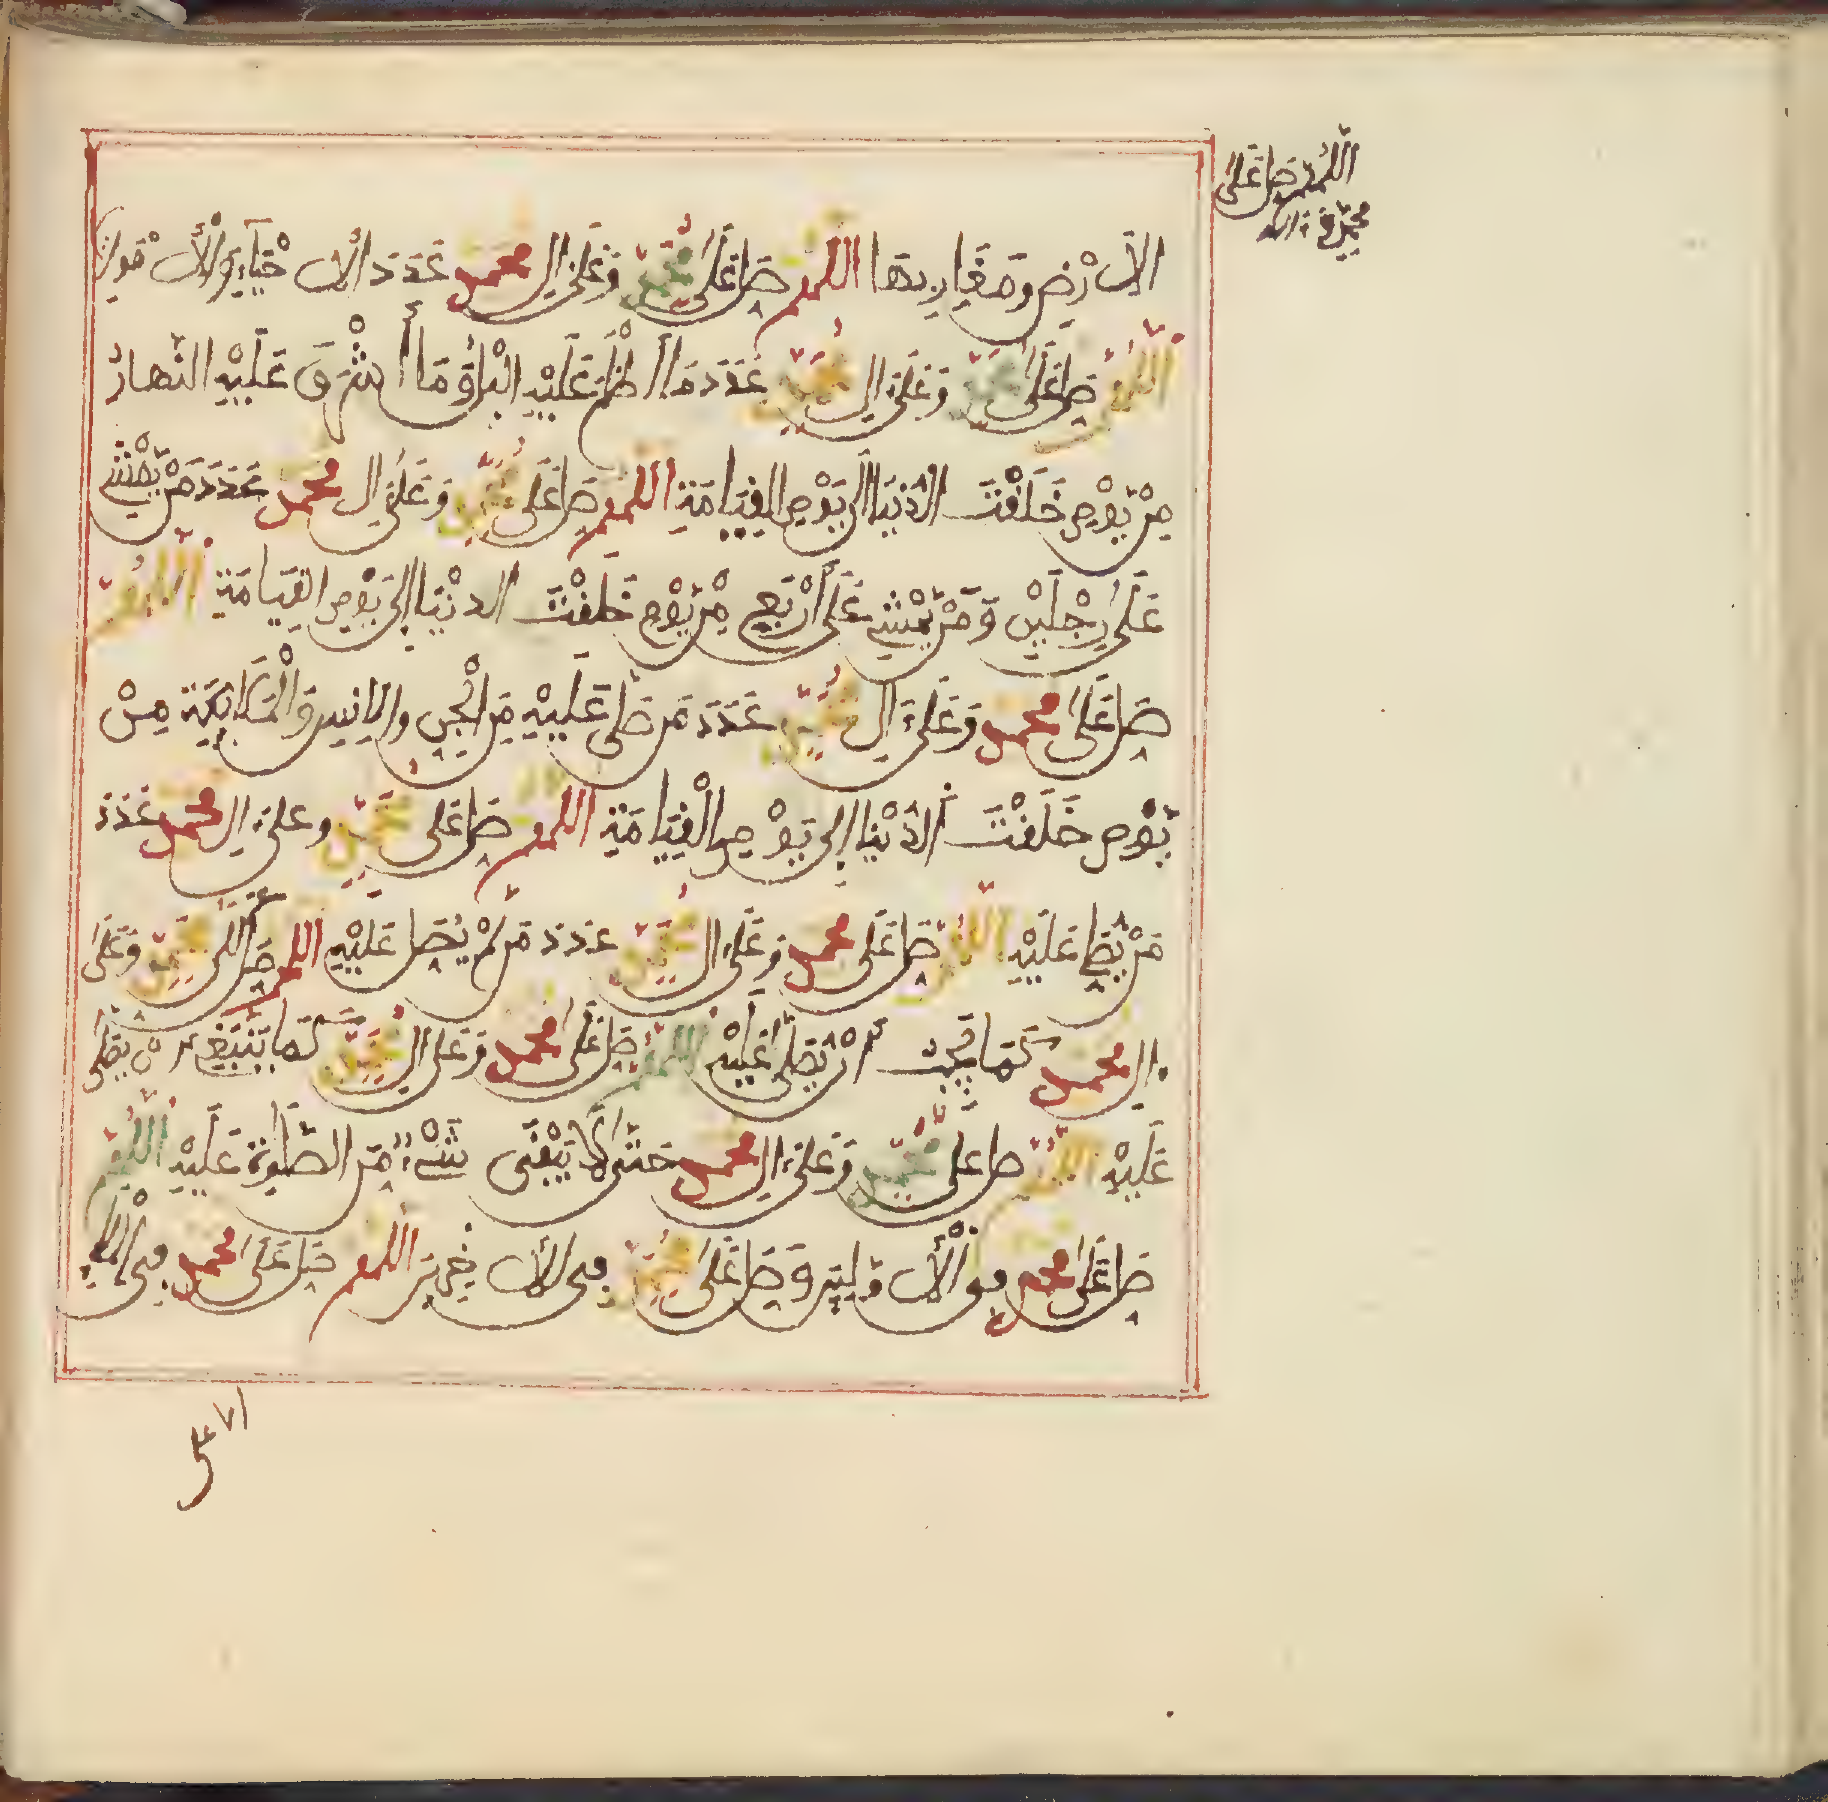 اللهم صل على
محمد و ءاله
الارض ومغاربها اللهم صل على محمد وعلى ءال محمد عدد الاحياء والاموات
اللهم صل على محمد وعلى ءال محمد عدد ما اظلم عليه اليل وما أشرق عليه النهار
من يوم خلقت الدنيا الى يوم القيامة اللهم صل على محمد وعلى ءال محمد عدد من يمشي
على رجلين ومن يمشي على أربع من يوم خلقت الدنيا إلى يوم القيامة اللهم
صل على محمد وعلى ءال محمد عدد من صلى عليه من الجن والانس والملائكة من
يوم خلقت الدنيا إلى يوم القيامة اللهم صل على محمد وعلى ءال محمد عدد
من يصل عليه اللهم صل على محمد وعلى ءال محمد عدد من لم يصل عليه اللهم صل على محمد وعلى
ءال محمد كما يجب أن يصلى عليه اللهم صل على محمد وعلى ءال محمد كما ينبغي ان يصلى
عليه اللهم صل على محمد وعلى ءال محمد حتى لا يبقى شيء من الصلوة عليه اللهم
صل على محمد في الأولين وصل على محمد في الأخرين اللهم صل على محمد في الملإ